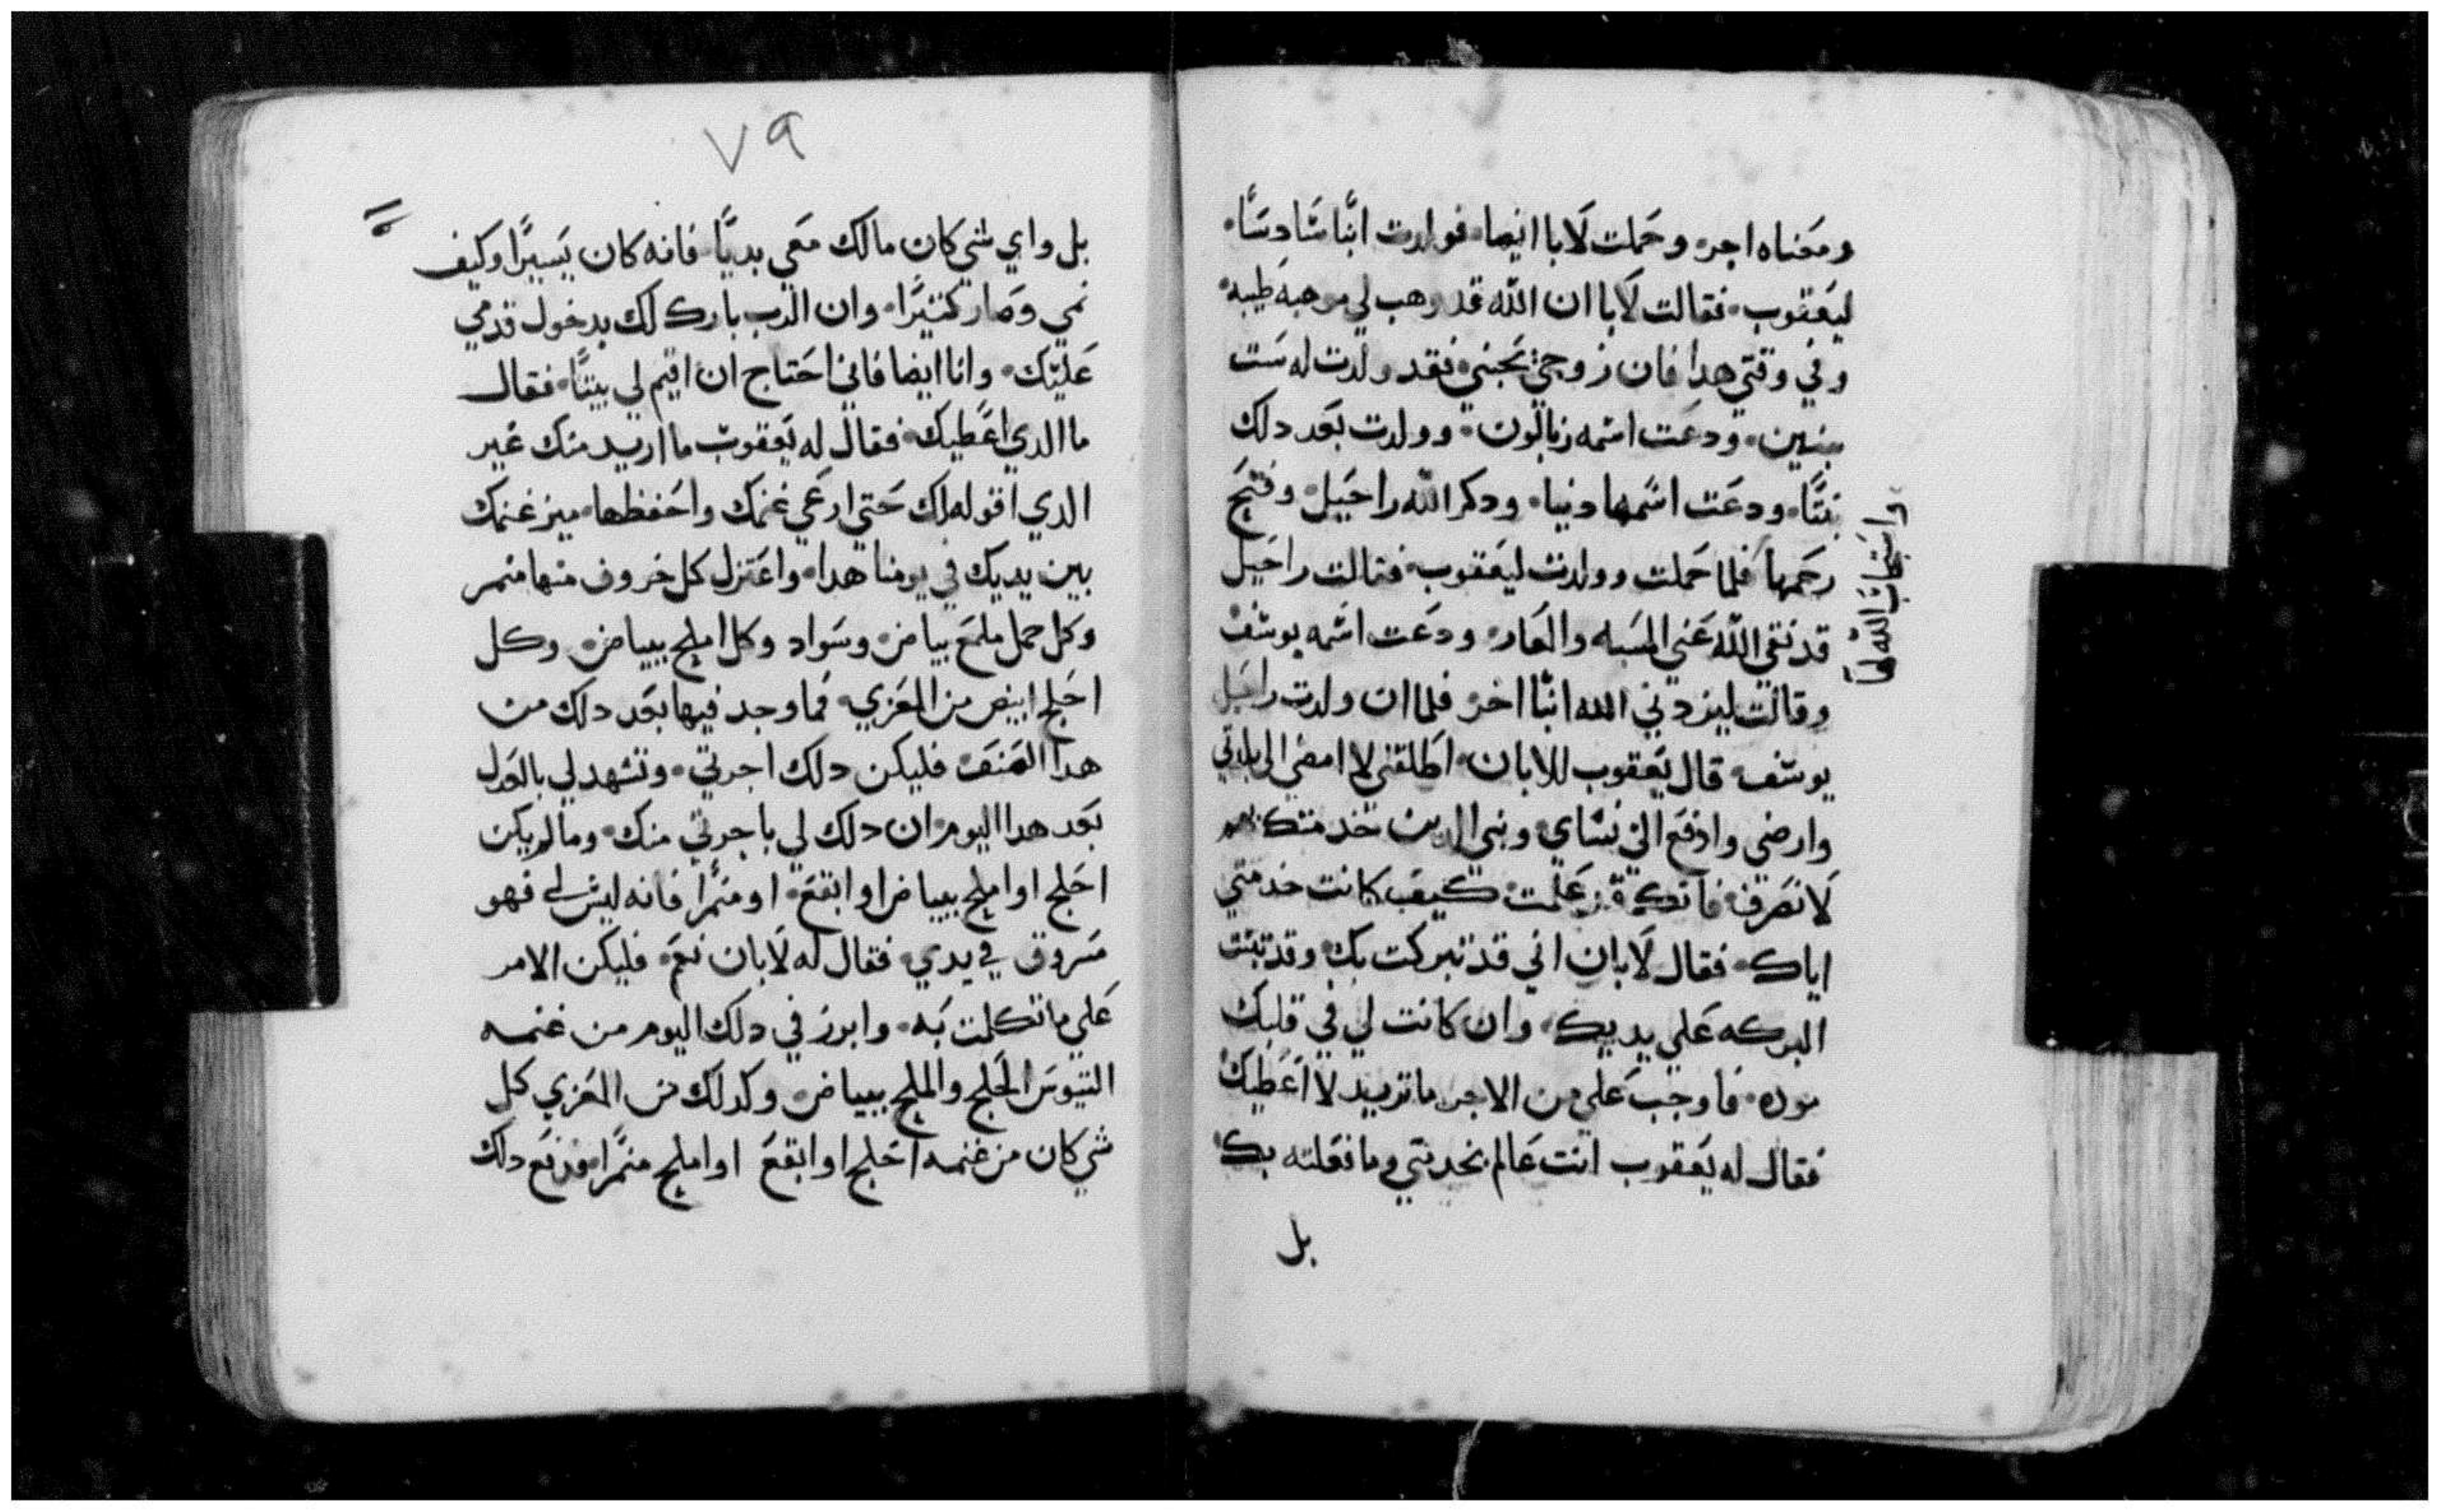 ومعناه اجره وحملت لايا ايضا فولدت ابنا سادسا
ليعقوب فقالت لايا ان الله قد وهب لي موهبه طيبه
وفي وقتي هدا فان زوجي يحبني فقد ولدت له ست
بنين ودعت اسمه زبالون وولدت بعد دلك
بنتا ودعت اسمها دنيا ودكر الله راحيل وفتح
واستجاب الله لها
رحمها فلما حملت وولدت ليعقوب فقالت راحيل
قد نقي الله عني المسبه والعار ودعت اسمه يوسف
وقالت ليزدني الله ابنا اخر فلما ان ولدت راحيل
يوسف قال يعقوب للابان اطلقني لامضي الى بلدتي
وارضي وادفع الي نساي وبني الدين خدمتك بهم
لانصرف فانك قد علمت كيف كانت خدمتي
اياك فقال لابان اني قد تبركت بك وقد تبتت
البركه علي يديك وان كانت لي في قلبك
موده فاوجب علي من الاجر ما تريد لاعطيك
فقال له يعقوب انت عالم بخدمتي وما فعلته بك
بل
٧٩
بل واي شي كان مالك معي بديا فانه كان يسيرا وكيف
نمي وصار كتيرا وان الرب بارك لك بدخول قدمي
عليك وانا ايضا فاني احتاج ان اقيم لي بيتا فقال
ما الدي اعطيك فقال له يعقوب ما اريد منك غير
الدي اقوله لك حتي ارعي غنمك واحفظها ميز غنمك
بين يديك في يومنا هدا واعتزل كل خروف منها منمر
وكل حمل ملمع بياض وسواد وكل املح ببياض وكل
احلج ابيض من المعزي فما وجد فيها بعد دلك من
هدا الصنف فليكن دلك اجرتي وتشهد لي بالعدل
بعد هدا اليوم ان دلك لي باجرتي منك وما لم يكن
احلج او املح ببياض او ابقع او منمرا فانه ليس لي فهو
مسروق في يدي فقال له لابان نعم فليكن الامر
علي ما تكلمت به وابرز في دلك اليوم من غنمه
التيوس الحلج والملح ببياض وكدلك من المعزي كل
شي كان من غنمه احلج او ابقع او املح منمرا ودفع دلك